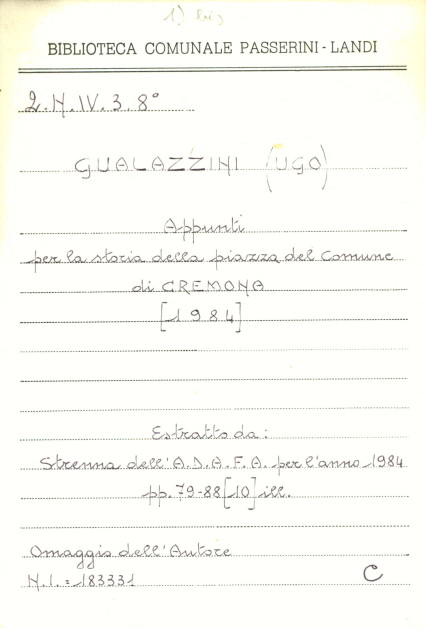 BIBLIOTECA COMUNALE PASSERINI-LANDI
2.H.IV.3.8°
GUALAZZINI (UGO)
Appunti
per la storia della piazza del Comune
di CREMONA
[1984]
Estratto da:
Strenna dell'A.D.A.F.A. per l'anno 1984
pp. 79-88 [10] ill.
Omaggio dell'Autore
N.I. = 183331
C